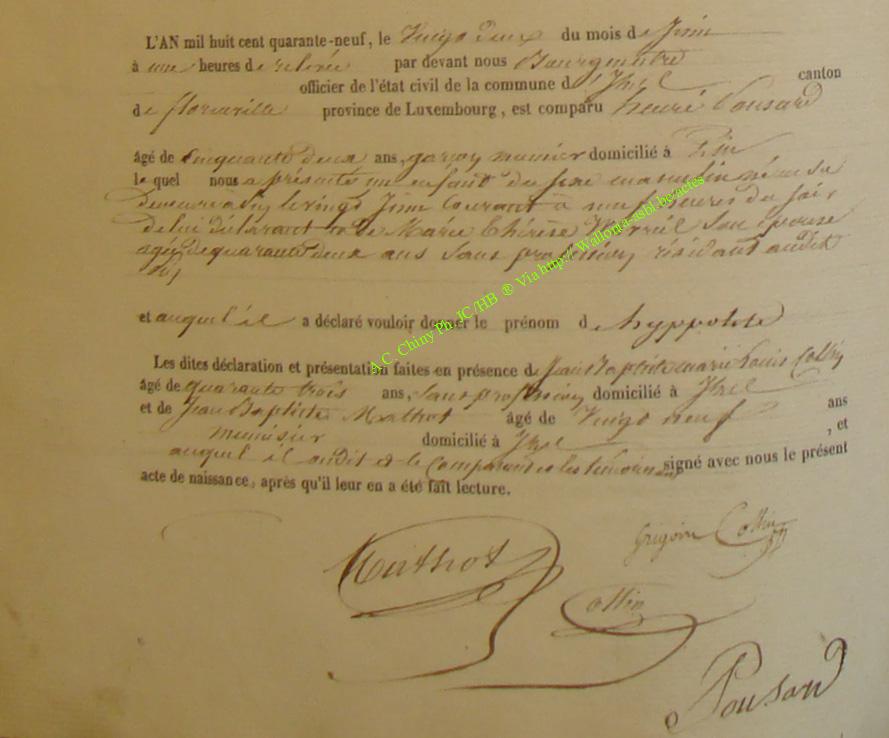 L'AN mil huit cent quarante-neuf, le Vingt deux du mois de Juin
à une heures de relevée par devant nous Bourgmestre
officier de l'état civil de la commune d'Izel canton
de florenville province de Luxembourg, est comparu henri Ponsard
âgé de Cinquante deux ans, garçon meunier domicilié à Pin
le quel nous a présenté un enfant du sexe masculin né en sa
demeure à Pin, le vingt Juin Courant à neuf heures du soir
de lui déclarant et de Marie Thérèse son épouse
agée de quarante deux ans Sans profession, résidant audit
et auquel il a déclaré vouloir donner le prénom d'hyppolite
Les dites déclaration et présentation faites en présence de Jean Baptiste marie Louis Collin
âgé de quarante trois ans, Sans profession, domicilié à Izel
et de Jean Baptiste Mathot âgé de Vingt neuf ans
menuisier domicilié à Izel , et
auquel il audit et le Comparant et les témoins signé avec nous le présent
acte de naissance, après qu'il leur en a été fait lecture.
Mathot
Grégoire Collin
Collin
Ponsard
A.C. Chiny Ph. JC /HB ® Via http://Wallonia-asbl.be;actes